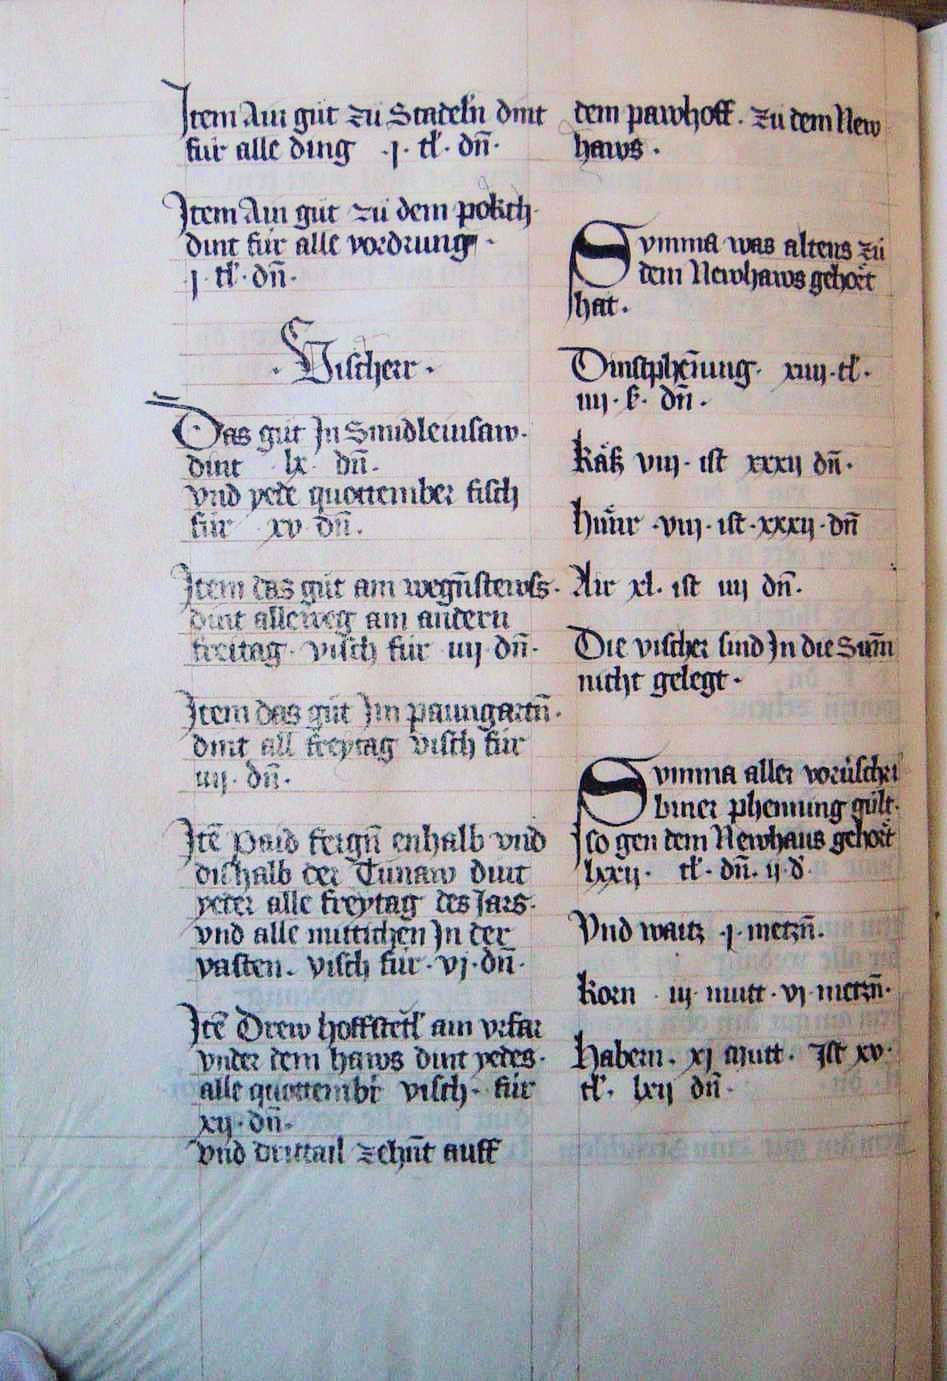 Item Ain gut zu Stadeln dint
fur alle ding · j · tl · dn̄ ·
Item Ain gut zu dem pokch
dint fur alle vordrung ·
j · tl · dn̄ ·
· Vischerr ·
Das gut Jn Smidleinsaw ·
dint lx dn̄ ·
vnd yede quottember fisch
fur xv dn̄ ·
Item das gut am
dint alleweg am andern
freitag · visch fur iiij · dn̄ ·
Item das gut Jm paungartn̄ ·
dint all freytag visch fur
iiij · dn̄ ·
Itē paid fergn̄ enhalb vnd
dishalb der Tunaw dint
yeder alle freytag des Jars ·
vnd alle mittichen Jn der
vasten · visch fur · vj · dn̄ ·
Itē Drew hoffstetl am vrfar
vnder dem haws dint yedes ·
alle quottembr visch · fur
xij · dn̄ ·
vnd drittail zehnt auff
dem pawhoff · zu dem New
haws ·
Summa was altens zu
dem Newhaws gehort
hat ·
Dinstphenīng · xiiij · tl ·
iiij · ß · dn̄ ·
käß viij · ist xxxij dn̄ ·
hüner · viij · ist · xxxij · dn̄
Air xl · ist iiij dn̄ ·
Die vischer sind Jn die Sum̄
nicht gelegt ·
Summa aller
phenning gült ·
so gen dem Newhaus gehort
lxxij · tl · dn̄ · ij · d
Vnd waitz · j · metzn̄ ·
korn iij · mutt · vj · metzn̄ ·
habern · xj mutt · Jst xv ·
tl · lxij dn̄ ·